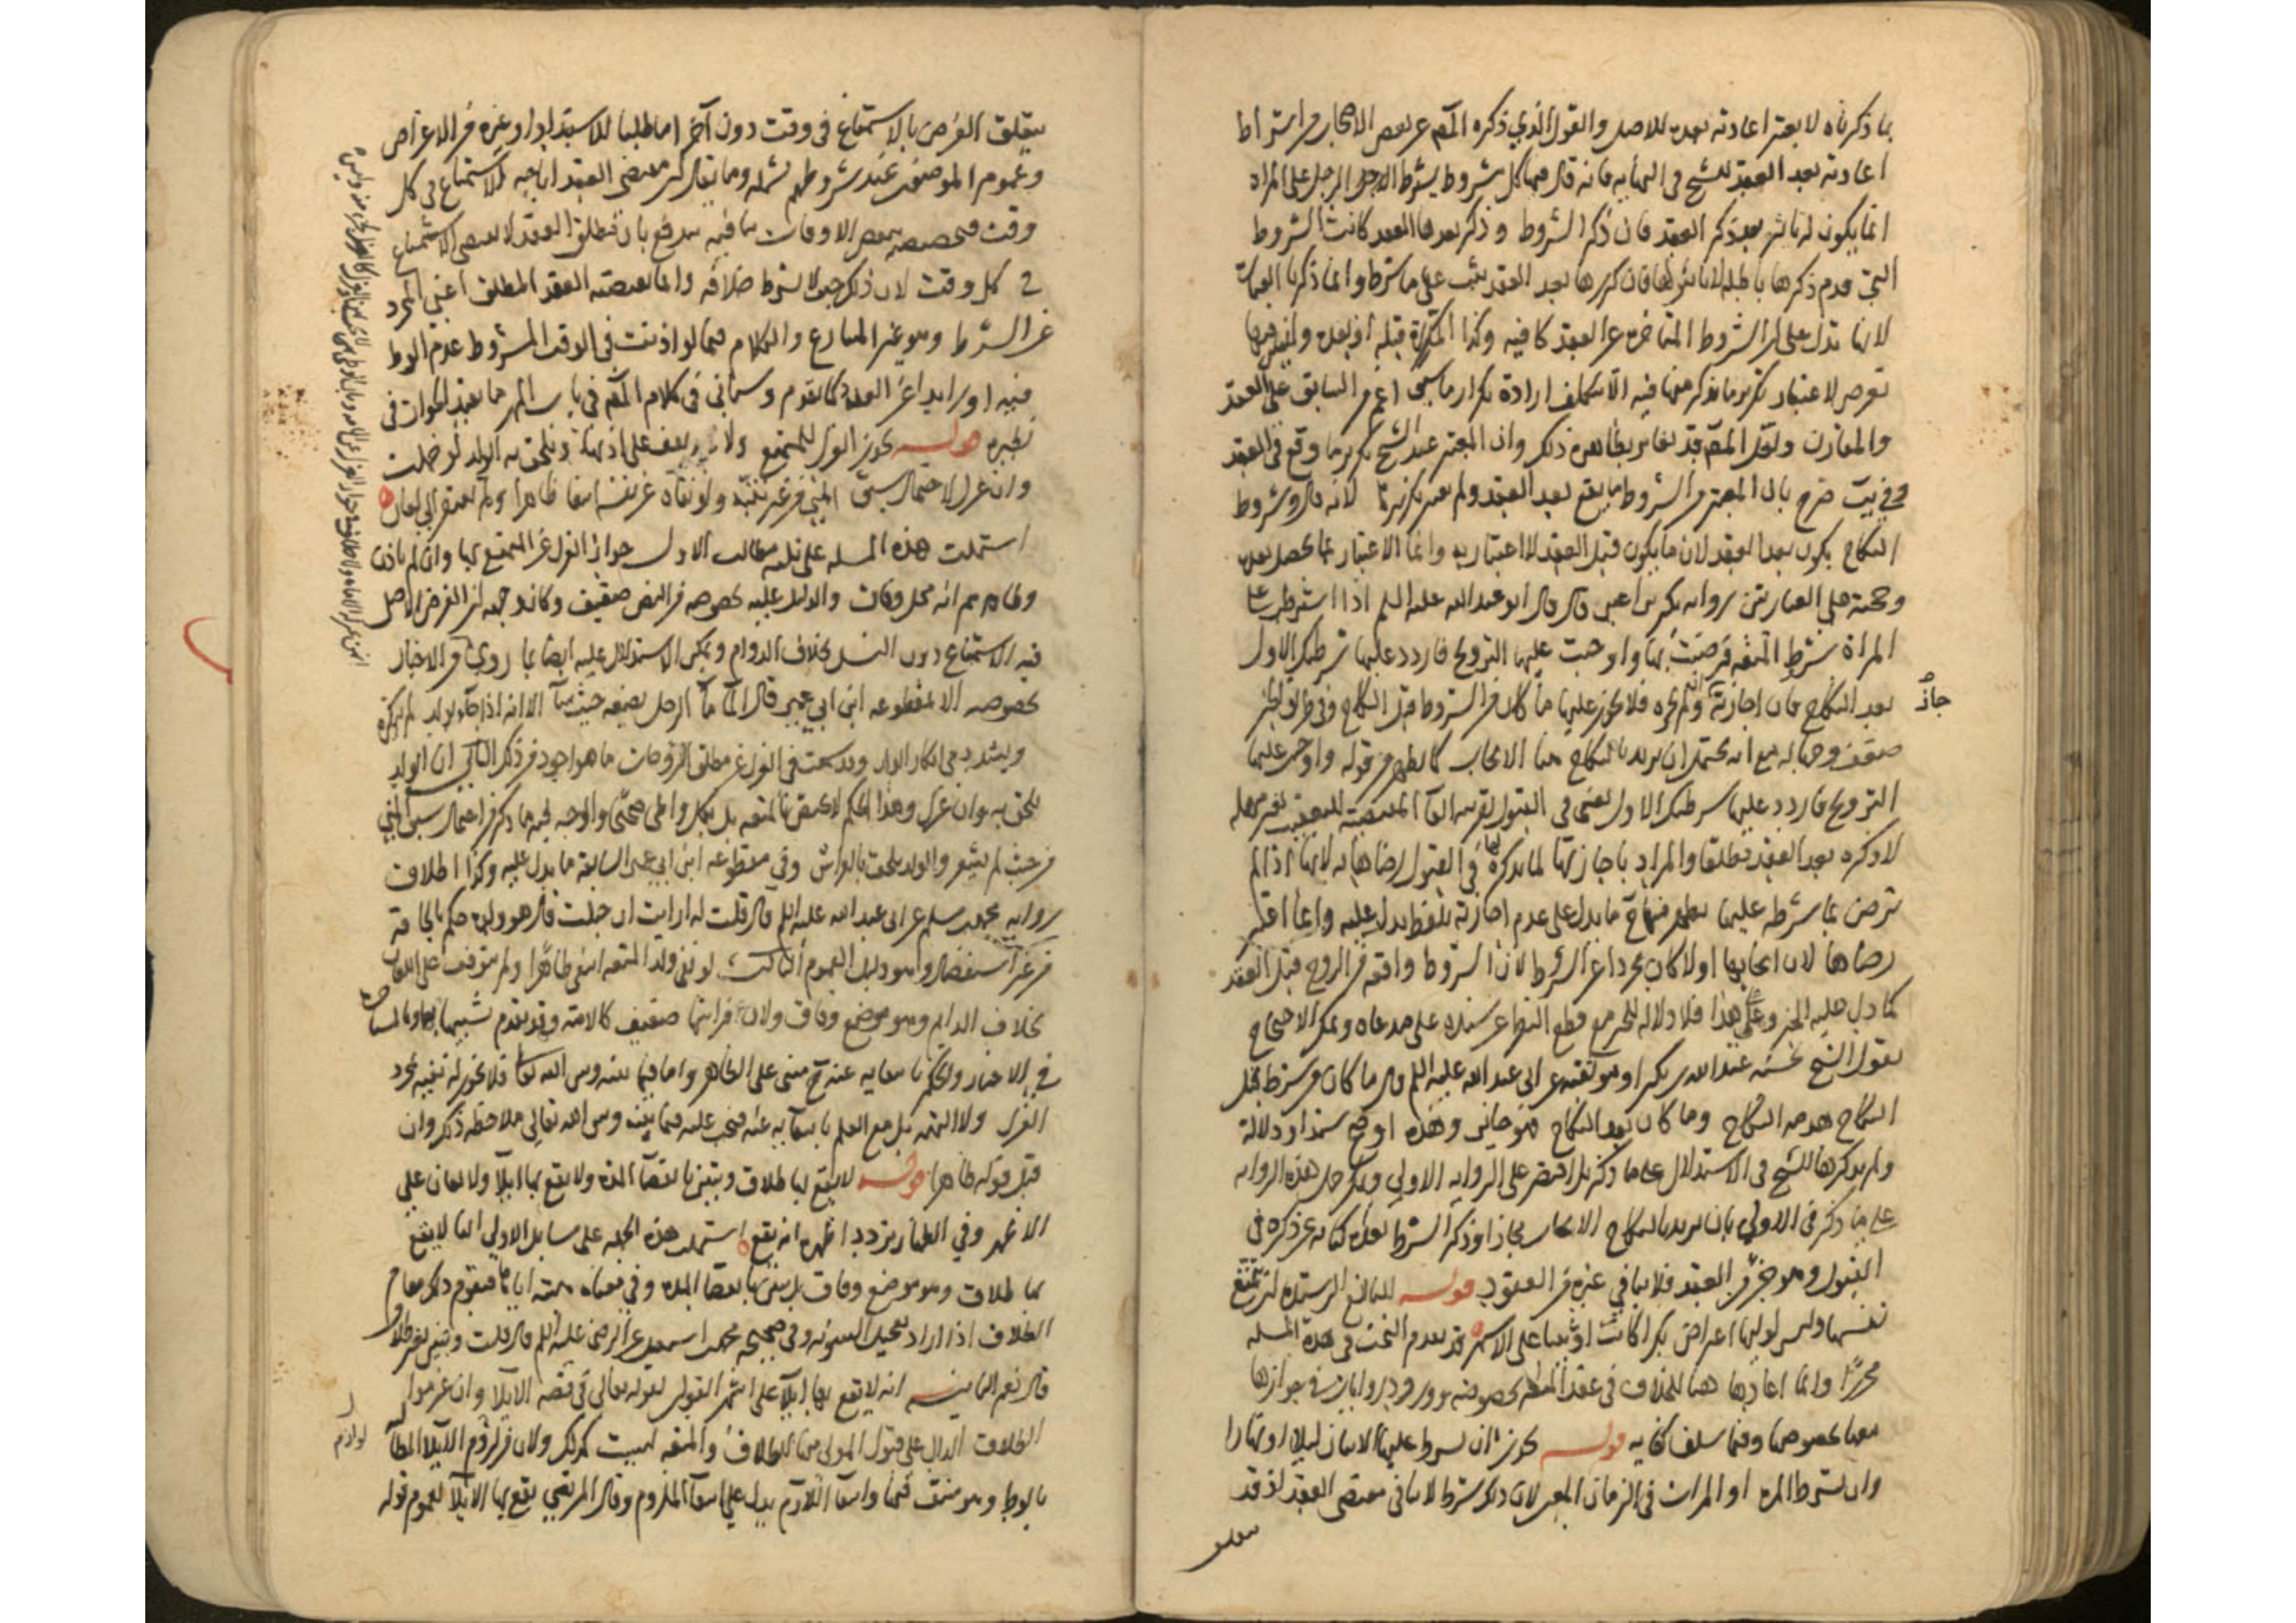 بما ذكرناه لا يعتبر اعادته بعده للاصل والقول الذي ذكره المص عن بعض الاصحاب من اشتراط
اعادته بعد العقد للشيخ في النهاية فانه قال فيها كل شرط يشرط الرجل على المراة
انما يكون له تاثير بعد ذكر العقد فان ذكر الشروط وذكر بعدها العقد كانت الشروط
التي قدم ذكرها باطلة لا تاثير لها فان كررها بعد العقد ثبت على ما شرط وانما ذكرنا العبارة
لانها تدل على ان الشروط المتاخرة عن العقد كافية وكذا المكررة قبله او بعده وليس فيها
تعرض لاعتبار تكرير ما يذكر منها فيه الا بتكلف ارادة تكرار ما سمى اعم من السابق على العقد
والمقارن ونقل المص قد يغاير بظاهره ذلك وان المعتبر عند الشيخ تكرير ما وقع في العقد
صرح بان المعتبر من الشروط ما يقع بعد العقد ولم يعتبر تكريرها لانه قال وشروط
النكاح يكون بعد العقد لان ما يكون قبل العقد لا اعتبار به وانما الاعتبار بما يحصل بعده
وحجته على العبارتين رواية بكير بن اعين قال قال ابو عبد الله عليه السلم اذا اشترطت على
المراة شرط المتعة فرضيت بها واوجبت عليها التزويج فاردد عليها شرطك الاول
بعد النكاح فان اجازته جاز وان لم تجزه فلا يجوز عليها ما كان من الشروط قبل النكاح وفي طريق الخبر
ضعف وجهالة مع انه يحتمل ان يريد بالنكاح هنا الايجاب كما يظهر من قوله واوجبت عليها
التزويج فاردد عليها شرطك الاول يعني في القبول بقرينة الفاء المقتضية للتعقيب بغير مهلة
لا ذكره بعد العقد مطلقا والمراد باجازتها لما يذكره في القبول رضاها به لانها اذا لم
ترض بما شرطه عليها يظهر منها ما يدل على عدم اجازته بلفظ يدل عليه وانما اعتبر
رضاها لان ايجابها اولا كان مجردا عن الشروط لان الشروط واقعة من الزوج قبل العقد
كما دل عليه الخبر وعلى هذا فلا دلالة للخبر مع قطع النظر عن سنده على مدعاه ويمكن الاحتجاج
لقول الشيخ بحسنة عبد الله بن بكير او موثقته عن ابي عبد الله عليه السلم قال ما كان من شرط قبل
النكاح هدمه النكاح وما كان بعد النكاح فهو جائز وهذه اوضح سندا ودلالة
ولم يذكرها الشيخ في الاستدلال على ما ذكر بل اقتصر على الرواية الاولى ويمكن حمل هذه الرواية
على ما ذكر في الاولى بان يريد بالنكاح الايجاب مجازا وذكر الشرط بعده كناية عن ذكره في
القبول وهو جزء من العقد فلا ينافي غيره من العقود قوله للبالغ الرشيدة ان تمتع
نفسها وليس لوليها اعتراض بكرا كانت او ثيبا على الاشهر قد تقدم البحث في هذه المسئلة
محررا وانما اعادها هنا للخلاف في عقد المتعة بخصوصه وورود روايات في جوازها
معها بخصوصها وفيما سلف كفاية قوله يجوز ان يشرط عليها الاتيان ليلا او نهارا
وان يشترط المرة او المرات في الزمان المعين لان ذلك شرط لا ينافي مقتضى العقد اذ قد
يتعلق
يتعلق الغرض بالاستمتاع في وقت دون آخر اما طلبا للاستبداد او غيره من الاغراض
وعموم المؤمنون عند شروطهم يشمله وما يقال من مقتضى العقد اباحة الاستمتاع في كل
وقت فتخصيصه ببعض الاوقات ينافيه يندفع بان مطلق العقد لا يقتضي الاستمتاع
في كل وقت لان ذلك حيث لا يشترط خلافه وانما يقتضيه العقد المطلق اعني المجرد
عن الشرط وهو غير المتنازع والكلام فيما لو اذنت في الوقت المشروط عدم الوطء
فيه او زايدا عن العدد كما تقدم وسياتي في كلام المص في باب المهر ما يفيد الجواز في
نظيره قوله يجوز العزل للمتمتع ولا يقف على اذنها ويلحق به الولد لو حملت
وان عزل لاحتمال سبق المني من غير تنبه ولو نفاه عن نفسه انتفى ظاهرا ولم يفتقر الى لعان
اشتملت هذه المسئلة على ثلثة مطالب الاول جواز العزل عن المتمتع بها وان لم ياذن
وظاهرهم انه محل وفاق والدليل عليه بخصوصه من النص ضعيف وكان وجهه ان الغرض الاصلي
فيه الاستمتاع دون النسل بخلاف الدوام ويمكن الاستدلال عليه ايضا بما روي من الاخبار
بخصوصه الا مقطوعة ابن ابي عمير قال الماء ماء الرجل يضعه حيث شاء الا انه اذا جاء ولد لم ينكره
وشدد في انكار الولد وقد سمعت في العزل عن مطلق الزوجات ما هو اجود من ذلك الثاني ان الولد
يلحق به وان عزل وهذا الحكم لا يختص بالمتعة بل بكل وطء صحيح والوجه فيه ما ذكر من احتمال سبق المني
من حيث لم يشعر والولد يلحق بالفراش وفي مقطوعة ابن ابي عمير السابقة ما يدل عليه وكذا اطلاق
رواية محمد بن مسلم عن ابي عبد الله عليه السلم قال قلت له ارايت ان حبلت قال هو ولده حكم بالحاقه
من غير استفصال وهو دليل العموم الثالث لو نفى ولد المتعة انتفى ظاهرا ولم يتوقف على اللعان
بخلاف الدايم وهو موضع وفاق ولان فراشها ضعيف كالامة وقد تقدم شبهها بها
في الاخبار والحكم بانتفايه عنه مبني على الظاهر واما فيما بينه وبين الله تعالى فلا يجوز له نفيه بمجرد
العزل ولا التهمة بل مع العلم بانتفائه عنه فيجب عليه فيما بينه وبين الله تعالى ملاحظة ذلك وان
قبل قوله ظاهرا قوله لا يقع بها طلاق وتبين بانقضاء المدة ولا يقع بها ايلاء ولا لعان على
الاظهر وفي الظهار تردد اظهره انه يقع اشتملت هذه الجملة على مسائل الاولى انها لا يقع
بها طلاق وهو موضع وفاق بل تبين بانقضاء المدة وفي معناه هبته اياها فيقوم ذلك مقام
الطلاق اذا اراد تعجيل البينونة وفي صحيحة محمد بن اسمعيل عن الرضا عليه السلم قال قلت وتبين بغير طلاق
قال نعم الثانية انه لا يقع بها ايلاء على اشهر القولين لقوله تعالى في قصة الايلاء وان عزموا
الطلاق الدال على قبول المولى منها للطلاق والمتعة ليست كذلك ولان من لوازم الايلاء المطالبة
بالوطء وهو منتف فيها وانتفاء اللازم يدل على انتفاء الملزوم وقال المرتضى يقع بها الايلاء لعموم قوله